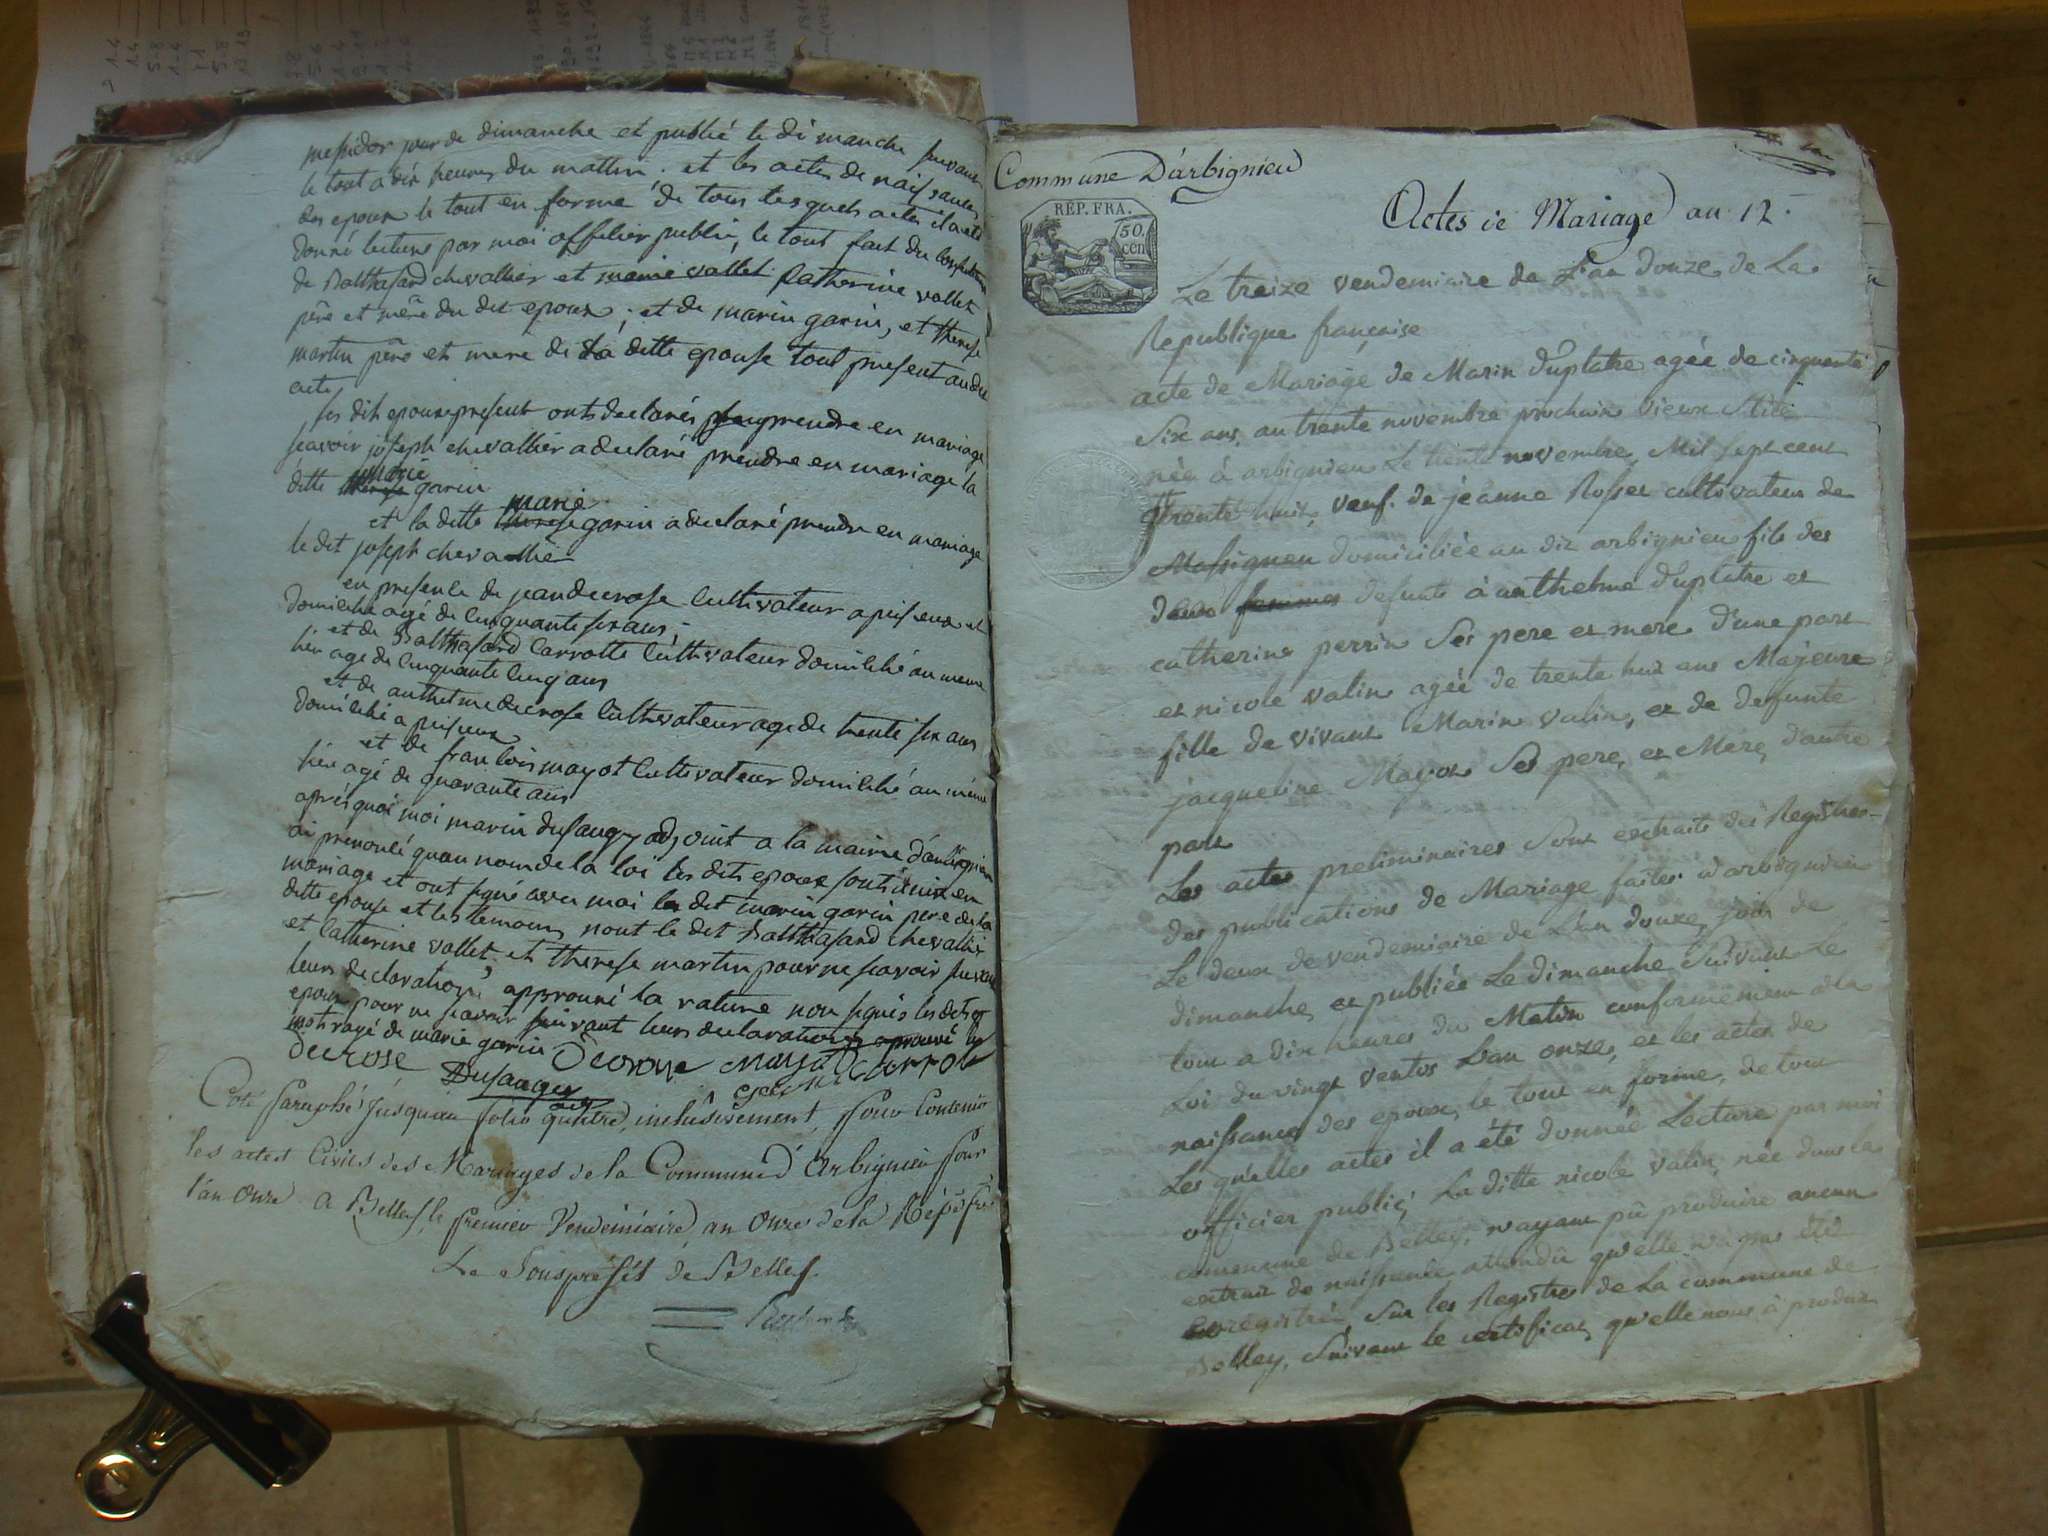 messidor jour de dimanche et publié le dimanche suivant
le tout a dix heures du mattin. et les actes de naissances
des epoux le tout en forme de tous lesquels actes il a été
donné lecture par moi officier public, le tout fait du
de Balthasard chevallier et marie vallet Catherine vallet
père et mêre du dit epoux; et de marin garin, et therese
martin pêre et mere de la ditte epouse tout present au dit
acte
les dits epoux present onts declarés prendre en mariage
scavoir joseph chevallier a declaré prendre en mariage la
marie
ditte therese garin
marie
et la ditte therese garin a declaré prendre en mariage
le dit joseph chevallier
en presence de jean decrose Cultivateur a peisieux et
domicilié agé de cinquante six ans;
et de Balthasard Carrotte Cultivateur domicilié au meme
lieu age de cinquante cinq ans
et de anthelme decrose Cultivateur age de trente six ans
domicilié a peisieux
et de francois mayot Cultivateur domicilié au même
lieu agé de quarante ans
après quoi moi marin dusaugey adjoint a la mairie d'arbignieu
ai prenoncé quau nom de la loi les dits epoux sont unix en
mariage et ont signé avec moi le dit marin garin pere de la
ditte epouse et les temoins nont le dit Balthasard chevallier
et Catherine vallet, et therese martin pour ne scavoir suivant
leurs declaration, approuvé la rature non signés les dits
epoux pour ne scavoir suivant leurs declarations aprouvé le
mot rayé de marie garin
decrose Decrose mayot Carrot
Dusaugey
adj
Coté Paraphé jusqu'au folio quatre, inclusivement, Pour Contenir
les actes Civils des Mariages de la Commune d'Arbignieu Pour
l'an Onze A Belley, le Premier Vendémiaire, an Onze de la Rép. frse
Le Souspréfét de Belley.
Commune D'arbignieu
REP. FRA.
50
cen
Actes de Mariage an 12
Le treize vendemiaire de L'an douze de La
Republique française
acte de Mariage de Marin Duplatre agée de cinquante
Six ans, au trente novembre prochain vieux stile
née à arbignieu le trente novembre Mil sept cent
quarente huit, veuf de jeanne Rosset cultivateur de
Massigneu domiciliée au dit arbignieu fils des
deux femmes defunts à anthelme Duplatre et
catherine perrin Ses pere et mere d'une part
et nicole valin agée de trente huit ans Majeure
fille de vivant Marin valin, et de defunte
jacqueline Mayot Ses pere, et Mere, d'autre
part
Les actes preliminaires Sont extraits des Registres
des publications de Mariage faites a arbignieu
Le deux de vendemiaire de L'an douze, jour de
dimanche, et publiée Le dimanche Suivant Le
tout a dix heures du Matin conformement a la
Loi du vingt ventos L'an onze, et les actes de
naissances des epoux, le tout en forme, de tout
Les quelles actes il a été donnée Lecture par moi
officier public, La ditte nicole valin, née dans la
commune de Belley, n'ayant pû produire aucun
extrait de naissance attendu qu'elle n'a pas été
enregistrée Sur les Registres de La commune de
Belley, Suivant le certificat, qu'elle nous à produit